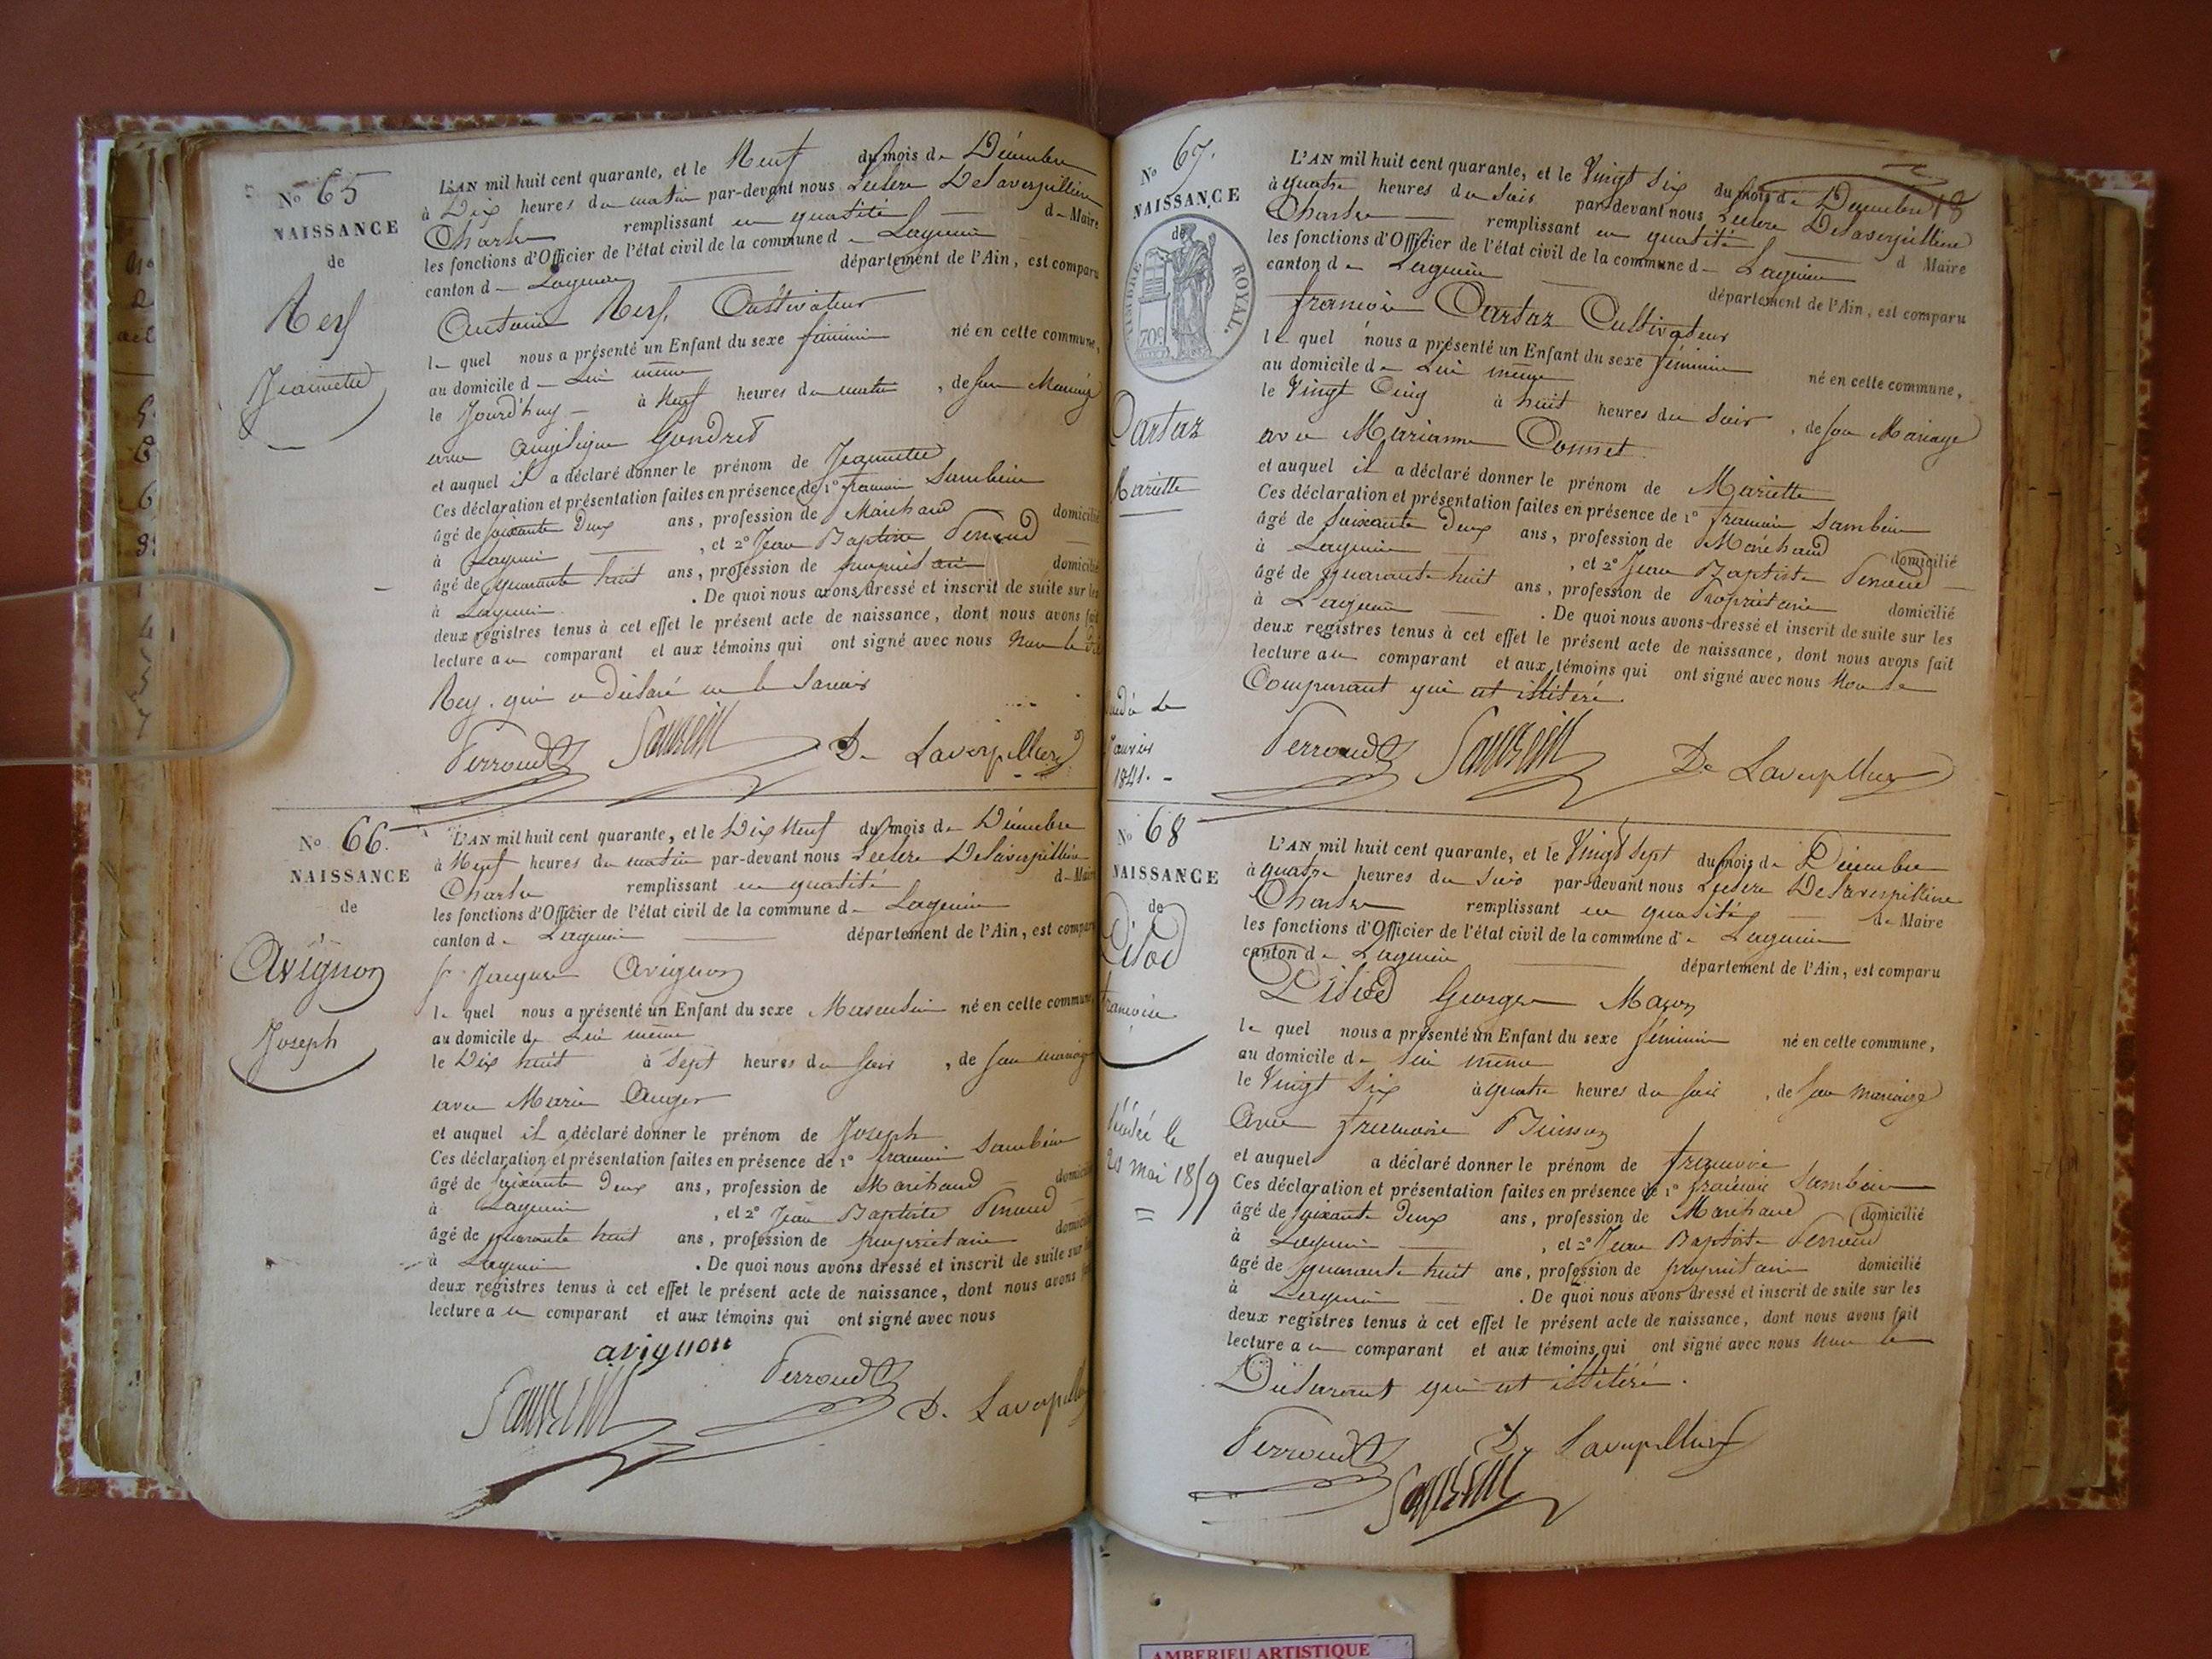 No 65
NAISSANCE
de
Rey
Jeannette
L'AN mil huit cent quarante, et le Neuf du mois de Décembre
à Dix heures du matin par-devant nous Leclerc Delaverpillière
Charles remplissant en qualité de Maire
les fonctions d'Officier de l'état civil de la commune de Lagnieu
canton de Lagnieu département de l'Ain, est comparu
Antoine Rey, Cultivateur
le quel nous a présenté un Enfant du sexe féminin né en cette commune,
au domicile de Lui même
le Jourd'huy à Neuf heures du matin, de son Mariage
avec Angélique Gondret
et auquel il a déclaré donner le prénom de Jeannette
Ces déclaration et présentation faites en présence de 1° françois Sambein
âgé de soixante Deux ans, profession de Marchand domicilié
à Lagnieu, et 2° Jean Baptiste Perroud
âgé de quarante huit ans, profession de propriétaire domicilié
à Lagnieu. De quoi nous avons dressé et inscrit de suite sur les
deux registres tenus à cet effet le présent acte de naissance, dont nous avons fait
lecture au comparant et aux témoins qui ont signé avec nous Non le dit
Rey. qui a déclaré ne le Savoir
Perroud De Laverpillière
No 66.
NAISSANCE
de
Avignon
Joseph
L'AN mil huit cent quarante, et le Dix Neuf du mois de Décembre
à Neuf heures du matin par-devant nous Leclerc Delaverpillière
Charles remplissant en qualité de Maire
les fonctions d'Officier de l'état civil de la commune de Lagnieu
canton de Lagnieu département de l'Ain, est comparu
Jacques Avignon
le quel nous a présenté un Enfant du sexe Masculin né en cette commune,
au domicile de Lui même
le Dix huit à Sept heures du soir, de son mariage
avec Marie Auger
et auquel il a déclaré donner le prénom de Joseph
Ces déclaration et présentation faites en présence de 1° françois Sambein
âgé de soixante Deux ans, profession de Marchand domicilié
à Lagnieu, et 2° Jean Baptiste Perroud
âgé de quarante huit ans, profession de propriétaire domicilié
à Lagnieu. De quoi nous avons dressé et inscrit de suite sur les
deux registres tenus à cet effet le présent acte de naissance, dont nous avons fait
lecture au comparant et aux témoins qui ont signé avec nous
avignon
Perroud
D. Laverpillière
No 67.
NAISSANCE
de
TIMBRE ROYAL.
70c
Cartaz
Mariette
Janvier
1841.
L'AN mil huit cent quarante, et le Vingt Six du mois de Décembre
à quatre heures du Soir par-devant nous Leclere Delaverpillière
Charles remplissant en qualité de Maire
les fonctions d'Officier de l'état civil de la commune de Lagnieu
canton de Lagnieu département de l'Ain, est comparu
françois Cartaz Cultivateur
le quel nous a présenté un Enfant du sexe féminin né en cette commune,
au domicile de Lui même
le Vingt Cinq à huit heures du Soir, de son Mariage
avec Marianne Connet
et auquel il a déclaré donner le prénom de Mariette
Ces déclaration et présentation faites en présence de 1° françois Sambein
âgé de Soixante Deux ans, profession de Marchand domicilié
à Lagnieu, et 2° Jean Baptiste Perroud
âgé de quarante huit ans, profession de Propriétaire domicilié
à Lagnieu. De quoi nous avons dressé et inscrit de suite sur les
deux registres tenus à cet effet le présent acte de naissance, dont nous avons fait
lecture au comparant et aux témoins qui ont signé avec nous Non le
Comparant qui est illitéré
Perroud De Laverpillière
No 68
NAISSANCE
de
françoise
Décédée le
20 mai 1859
L'AN mil huit cent quarante, et le Vingt Sept du mois de Décembre
à quatre heures du Soir par-devant nous Leclere Delaverpillière
Charles remplissant en qualité de Maire
les fonctions d'Officier de l'état civil de la commune de Lagnieu
canton de Lagnieu département de l'Ain, est comparu
Georges Maçon
le quel nous a présenté un Enfant du sexe féminin né en cette commune,
au domicile de lui même
le Vingt Six à quatre heures du soir, de son mariage
Avec françoise Buisson
et auquel a déclaré donner le prénom de françoise
Ces déclaration et présentation faites en présence de 1° françois Sambein
âgé de soixante Deux ans, profession de Marchand domicilié
à Lagnieu, et 2° Jean Baptiste Perroud
âgé de quarante huit ans, profession de propriétaire domicilié
à Lagnieu. De quoi nous avons dressé et inscrit de suite sur les
deux registres tenus à cet effet le présent acte de naissance, dont nous avons fait
lecture au comparant et aux témoins qui ont signé avec nous Non le
Déclarant qui est illitéré.
Perroud De Laverpillière
AMBERIEU ARTISTIQUE